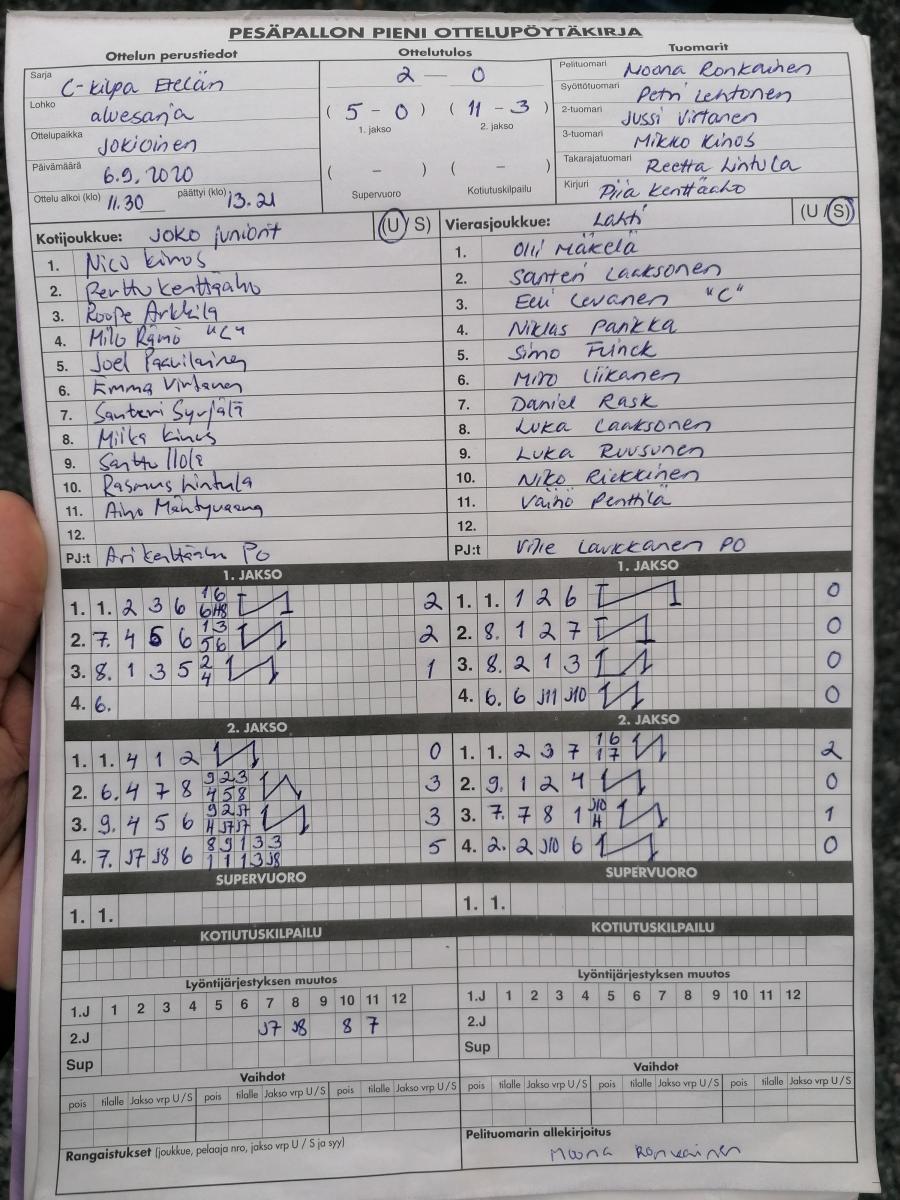 PESÄPALLON PIENI OTTELUPÖYTÄKIRJA
Ottelun perustiedot
Sarja C-kilpa Etelän
Lohko aluesarja
Ottelupaikka Jokioinen
Päivämäärä 6.9.2020
Ottelu alkoi (klo) 11.30 päättyi (klo) 13.21
Ottelutulos
2 — 0
( 5 - 0 ) ( 11 - 3 )
1. jakso 2. jakso
( - ) ( - )
Supervuoro Kotiutuskilpailu
Tuomarit
Pelituomari Noona Ronkainen
Syöttötuomari Petri Lehtonen
2-tuomari Jussi Virtanen
3-tuomari Mikko Kinos
Takarajatuomari Reetta Lintula
Kirjuri Piia Kenttäaho
Kotijoukkue: JoKo juniorit (U / S)
1. Nico Kinos
2. Perttu Kenttäaho
3. Roope Arkkila
4. Milo Rämö "C"
5. Joel Paavilainen
6. Emma Virtanen
7. Santeri Syrjälä
8. Miika Kinos
9. Santtu Ilola
10. Rasmus Lintula
11. Aino Mäntyvaara
12.
PJ:t Ari Kenttäaho PO
Vierasjoukkue: Lahti (U / S)
1. Olli Mäkelä
2. Santeri Laaksonen
3. Eeli Levänen "C"
4. Niklas Pankka
5. Simo Frinck
6. Miro Liikanen
7. Daniel Rask
8. Luka Laaksonen
9. Luka Ruusunen
10. Niko Riekkinen
11. Väinö Penttilä
12.
PJ:t Ville Laukkanen PO
1. JAKSO
1. 1. 2 3 6 1 6 2
6 H8
2. 7. 4 5 6 1 3 2
5 6
3. 8. 1 3 5 2 1
4
4. 6.
1. JAKSO
1. 1. 1 2 6 0
2. 8. 1 2 7 0
3. 8. 2 1 3 0
4. 6. 6 J11 J10 0
2. JAKSO
1. 1. 4 1 2 0
2. 6. 4 7 8 9 2 3 3
4 5 8
3. 9. 4 5 6 9 2 J7 3
H J7 J7
4. 7. J7 J8 6 8 9 1 3 3 5
1 1 1 3 J8
2. JAKSO
1. 1. 2 3 7 1 6 2
1 7
2. 9. 1 2 4 0
3. 7. 7 8 1 J10 1
H
4. 2. 2 J10 6 0
SUPERVUORO
1. 1.
SUPERVUORO
1. 1.
KOTIUTUSKILPAILU
KOTIUTUSKILPAILU
Lyöntijärjestyksen muutos
1.J 1 2 3 4 5 6 7 8 9 10 11 12
2.J J7 J8 8 7
Sup
Lyöntijärjestyksen muutos
1.J 1 2 3 4 5 6 7 8 9 10 11 12
2.J
Sup
Vaihdot
pois tilalle Jakso vrp U/S pois tilalle Jakso vrp U/S pois tilalle Jakso vrp U/S
Vaihdot
pois tilalle Jakso vrp U/S pois tilalle Jakso vrp U/S pois tilalle Jakso vrp U/S
Rangaistukset (joukkue, pelaaja nro, jakso vrp U / S ja syy)
Pelituomarin allekirjoitus
Noona Ronkainen